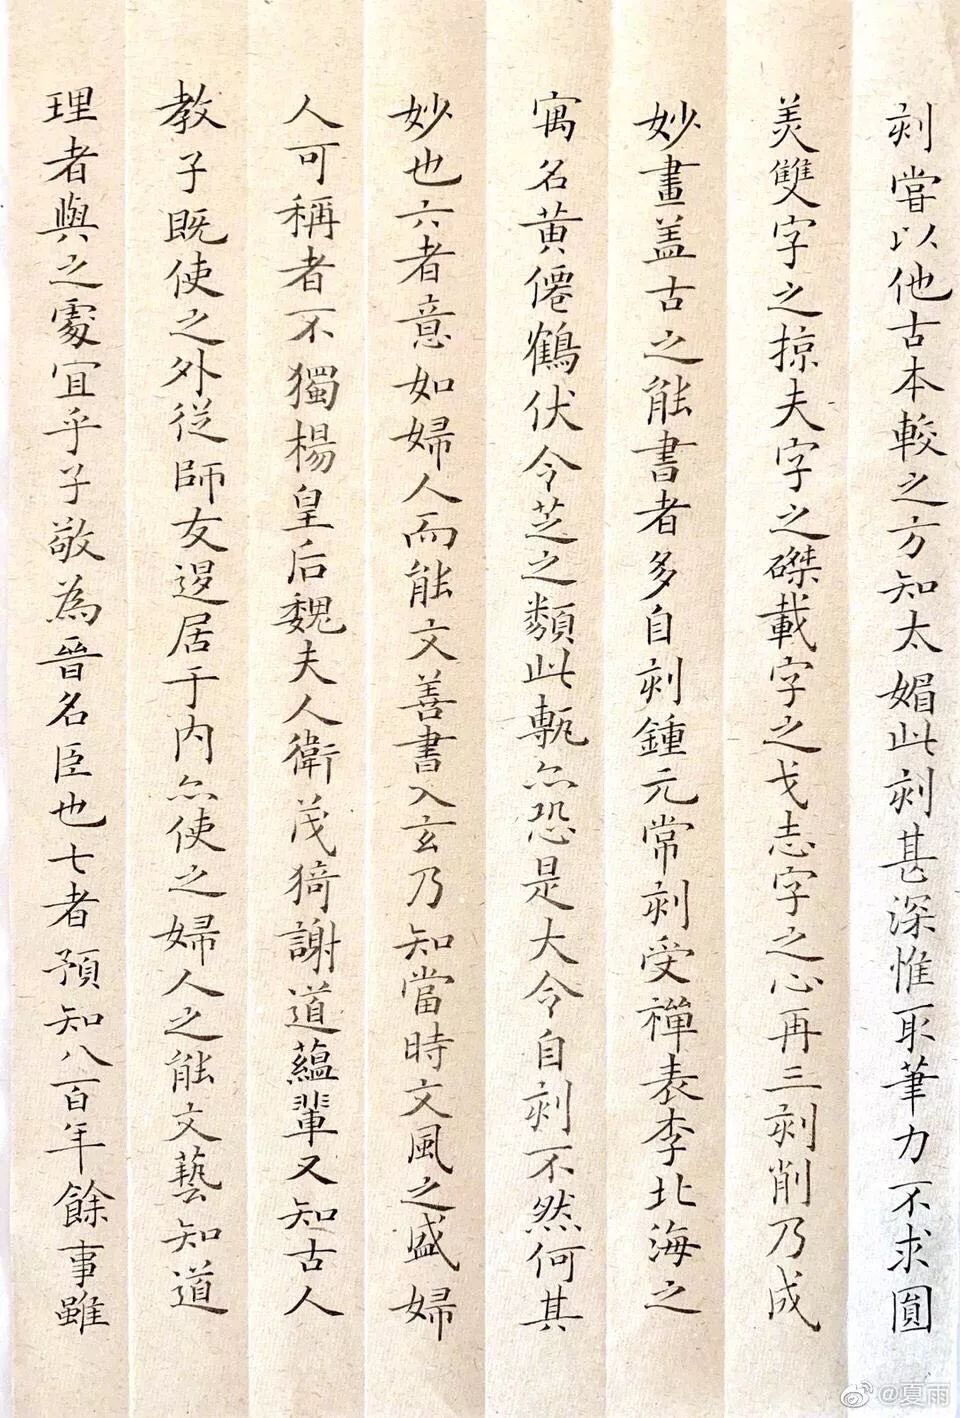 刻嘗以他古本較之方知太媚此刻甚深惟取筆力不求圓
美雙字之掠夫字之磔載字之戈志字之心再三刻削乃成
妙畫盖古之能書者多自刻鍾元常刻受禪表李北海之
寓名黄僊鶴伏令芝之類此甎亦恐是大令自刻不然何其
妙也六者意如婦人而能文善書入玄乃知當時文風之盛婦
人可稱者不獨楊皇后魏夫人衛茂猗謝道蘊輩又知古人
教子既使之外從師友退居于内亦使之婦人之能文藝知道
理者與之處宜乎子敬為晉名臣也七者預知八百年餘事雖
@夏雨